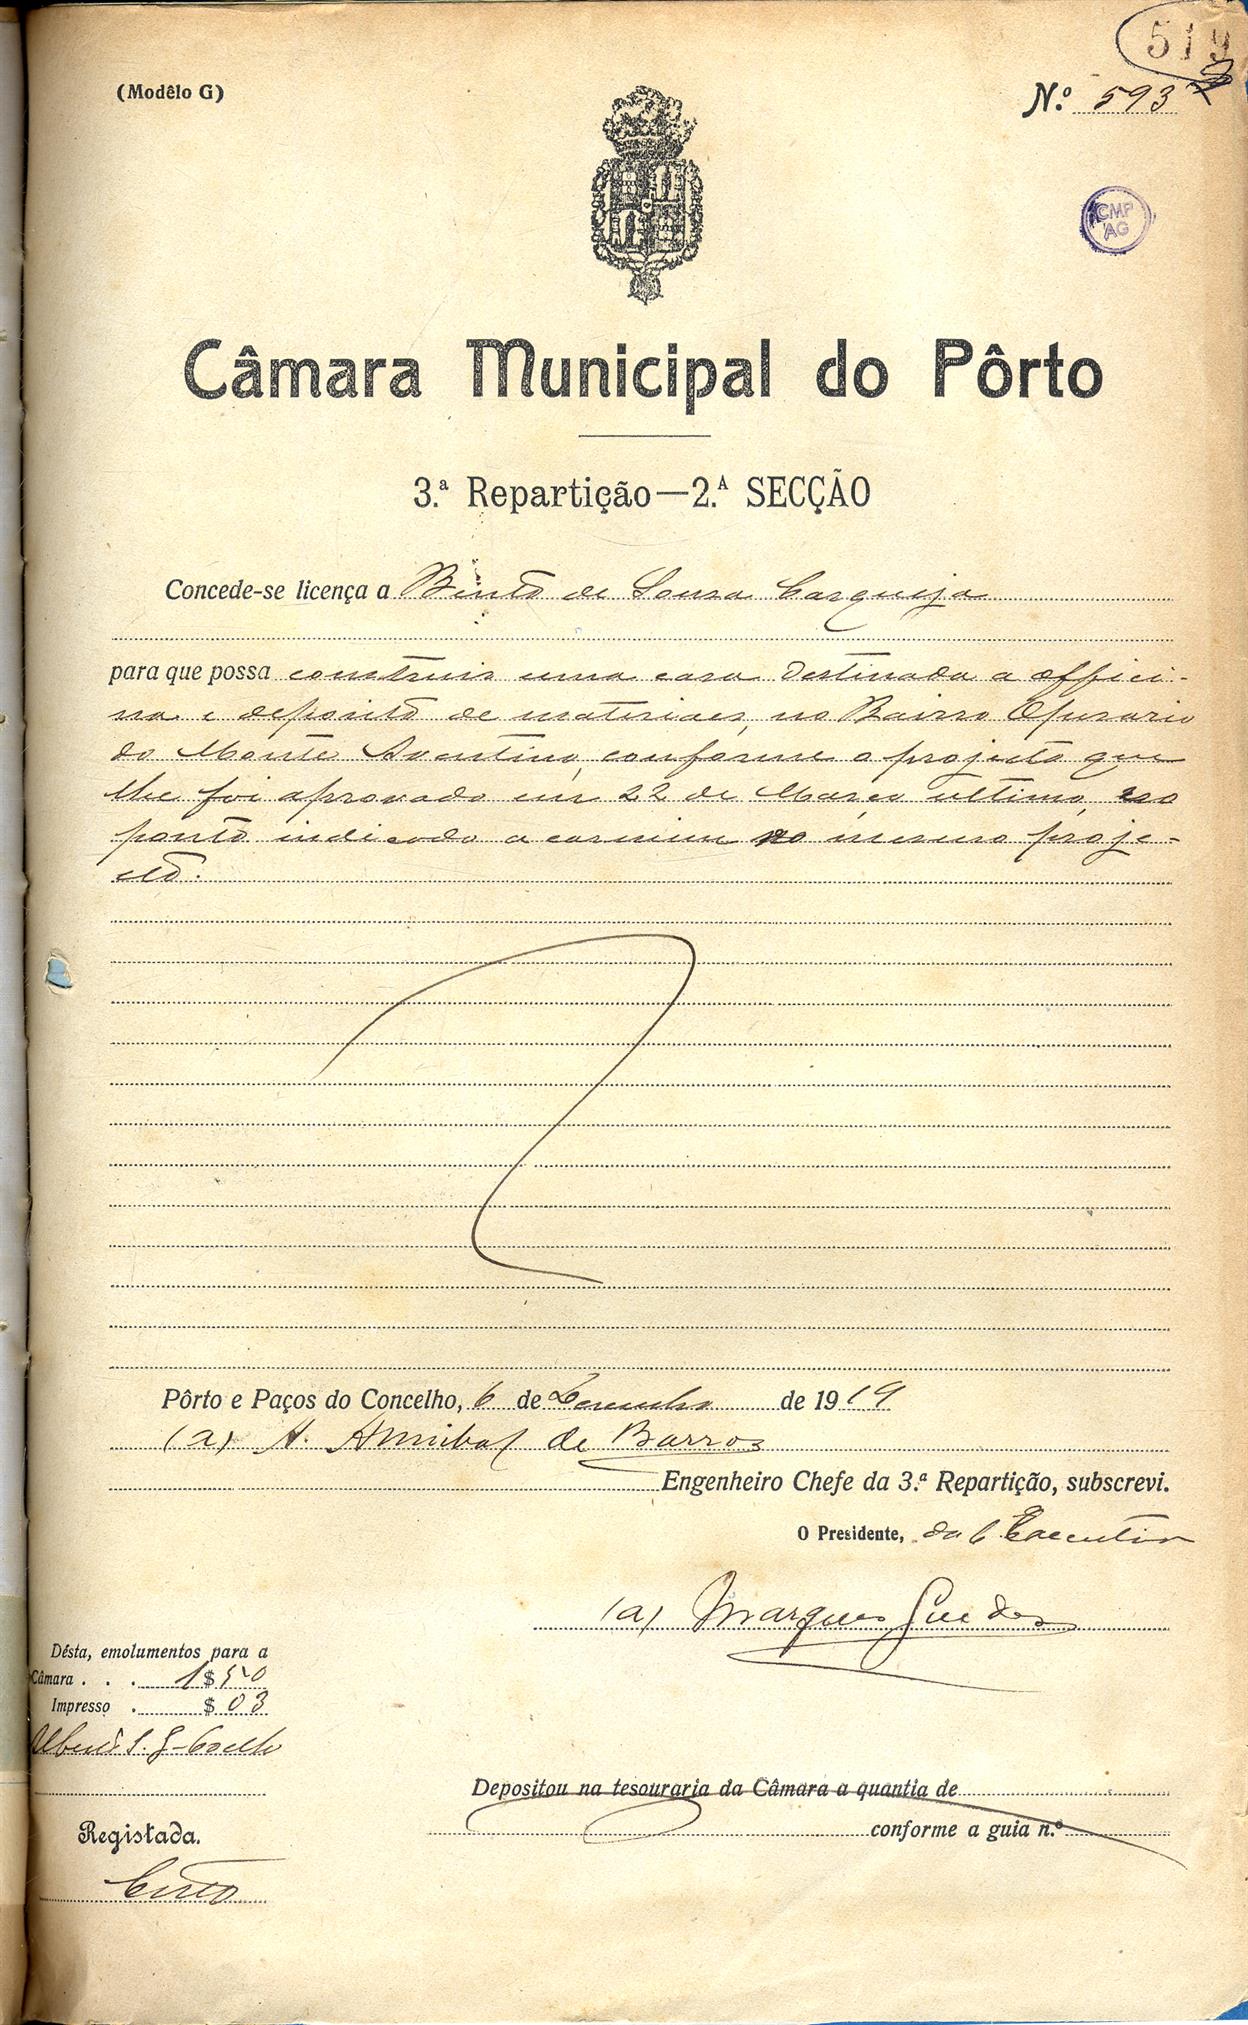 519
(Modêlo G)
N.º 593
CMP
AG
Câmara Municipal do Pôrto
3.ª Repartição—2.ª SECÇÃO
Concede-se licença a Bento de Sousa Carqueja
para que possa construir uma casa destinada a offici-
na e deposito de materiaes, no Bairro Operario
do Monte Aventino, conforme o projecto que
lhe foi aprovado em 22 de Março ultimo, no
ponto indicado a carmim no mesmo proje-
cto.
Pôrto e Paços do Concelho, 6 de Dezembro de 1919
(a) A. Annibal de Barros
Engenheiro Chefe da 3.ª Repartição, subscrevi.
O Presidente, da C. Executiva
(a) Marques Guedes
Désta, emolumentos para a
Câmara . . . 1$50
Impresso . $03
Alberto S. G. Coelho
Depositou na tesouraria da Câmara a quantia de
conforme a guia n.º
Registada.